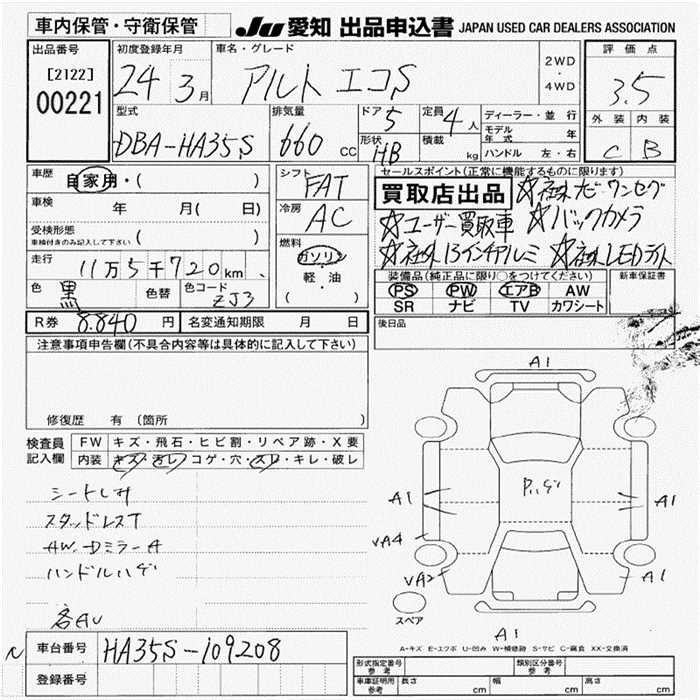 車内保管・守衛保管 JU 愛知 出品申込書 JAPAN USED CAR DEALERS ASSOCIATION
出品番号 初度登録年月 車名・グレード 評価点
[2122] 24 3月 アルト エコS 2WD・4WD 3.5
00221
型式 排気量 ドア 5 定員 4人 ディーラー・並行 外装 内装
DBA-HA35S 660 cc 形状 HB 積載 kg モデル年式 年 C B
ハンドル 左・右
車歴 自家用・( ) シフト FAT セールスポイント(正常に機能するものに限ります)
車検 年 月( 日) 冷房 AC 買取店出品 ☆社外ナビ-ワンセグ
受検形態 車検付きのみ記入して下さい ( ) ☆ユーザー買取車 ☆バックカメラ
走行 11万5千720km 燃料 ガソリン ☆社外13インチアルミ ☆社外LEDライト
色 黒 色替 色コード ZJ3 軽・油 ( )
装備品(純正品に限り○をつけてください) 新車保証書
PS PW エアB AW
SR ナビ TV カワシート
R券 8.840円 名変通知期限 月 日 後日品
注意事項申告欄(不具合内容等は具体的に記入して下さい)
修復歴 有 (箇所
検査員記入欄 FW キズ・飛石・ヒビ割・リペア跡・X要
内装 キズ・汚レ・コゲ・穴・スレ・キレ・破レ
シートしみ
スタッドレスT
AW.Dミラー A
ハンドルハゲ
各AU
A1
A1
A1
VA4
VA2
A1
A1
スペア
A-キズ E-エクボ U-凹み W-補修跡 S-サビ C-腐食 XX-交換済
N 車台番号 HA35S-109208
登録番号
形式指定番号 参考 類別区分番号 参考
車庫証明用 参考 長さ cm 幅 cm 高さ cm